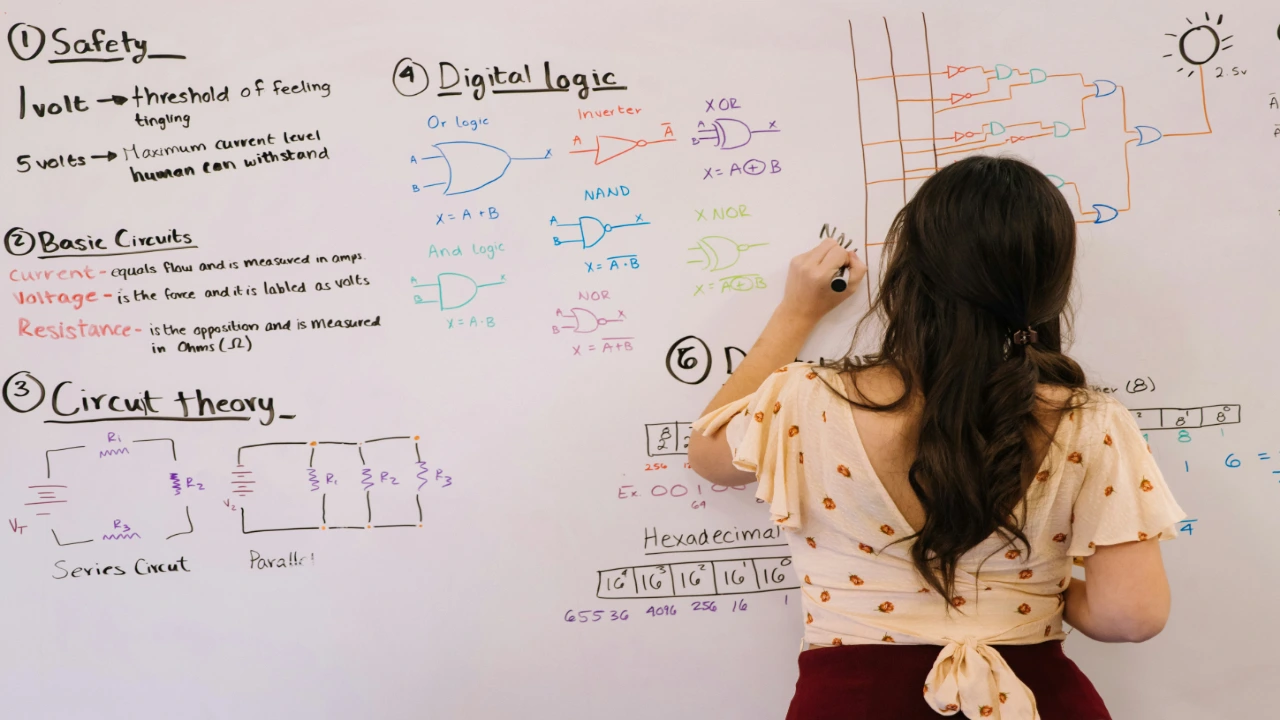 ① Safety
1 volt → threshold of feeling
tingling
5 volts → Maximum current level
human can withstand
② Basic Circuits
Current - equals flow and is measured in amps.
Voltage - is the force and it is labled as volts
Resistance - is the opposition and is measured
in Ohms (Ω)
③ Circuit theory
R1
R2
R3
VT
Series Circut
R1
R2
R3
Parallel
④ Digital logic
Or logic
A
B
X
X = A + B
And logic
A
B
X
X = A·B
Inverter
A
A̅
NAND
A
B
X
X = A̅·̅B̅
NOR
A
B
X
X = A̅+̅B̅
X OR
A
B
X
X = A ⊕ B
X NOR
X = A̅⊕̅B̅
2.5v
(8)
8¹ 8⁰
8 1
1 6 =
256
64
Ex. 001
Hexadecimal
16⁴ 16³ 16² 16¹ 16⁰
65536 4096 256 16 1